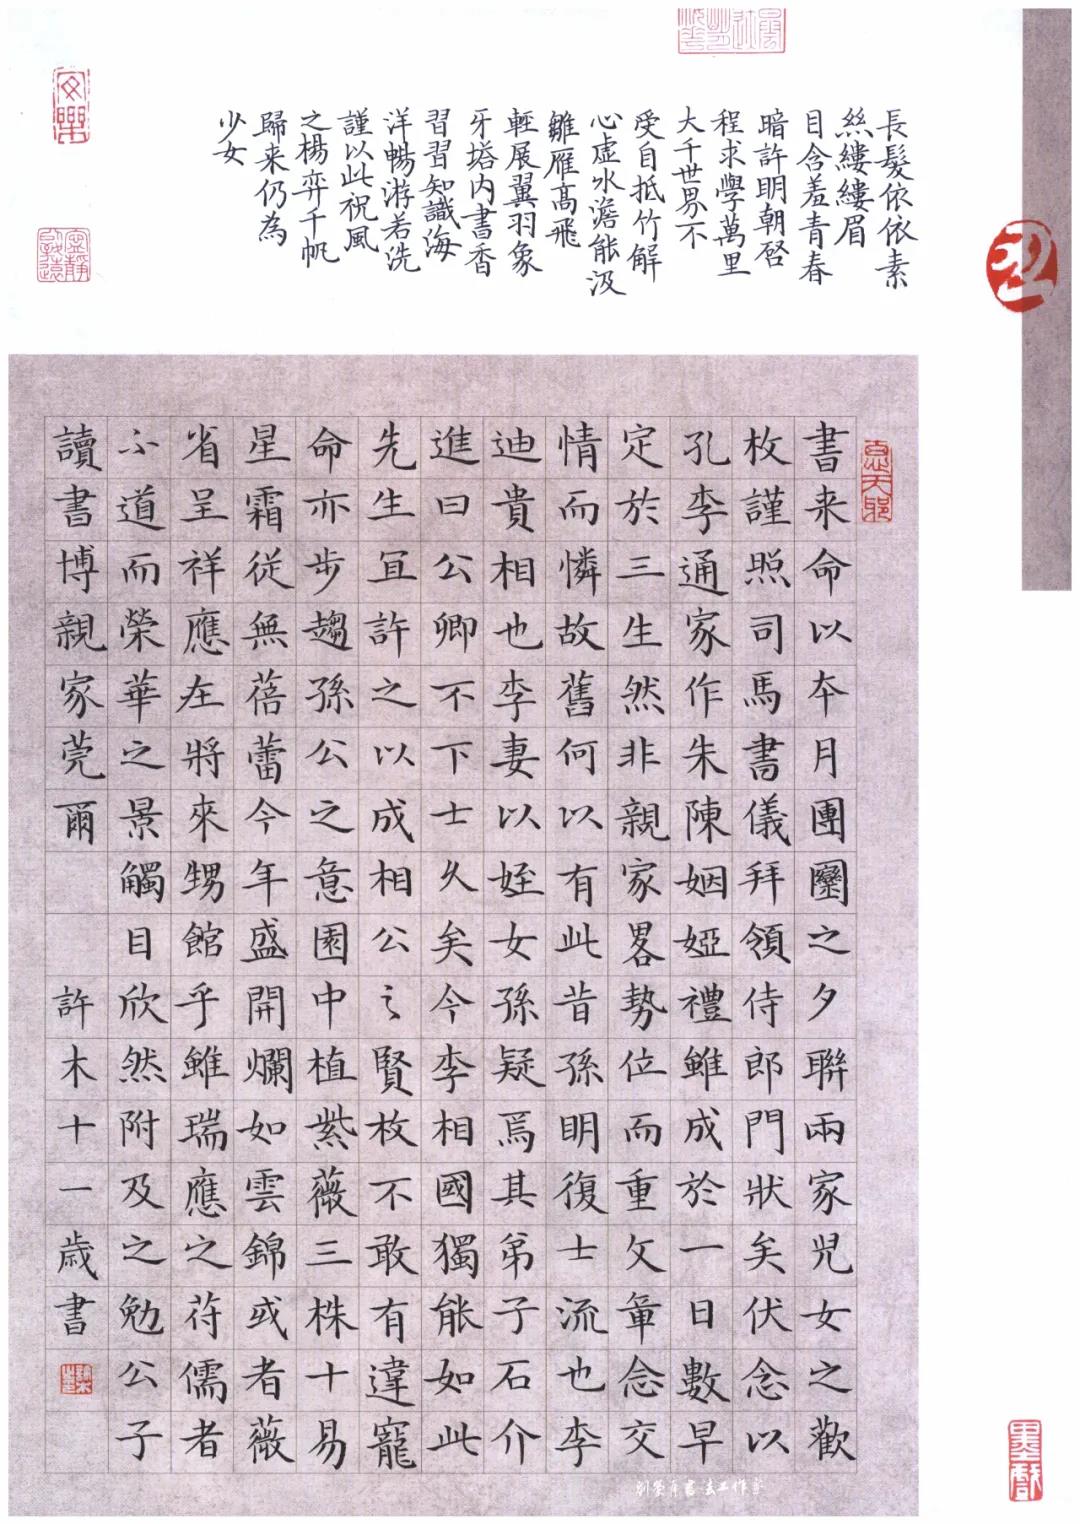 長髮依依素
絲縷縷眉
目含羞青春
暗許明朝啓
程求學萬里
大千世界不
受自抵竹解
心虛水澹能汲
雛雁高飛
輕展翼羽象
牙塔内書香
習習知識海
洋暢游若洗
謹以此祝風
之楊弈千帆
歸来仍為
少女
書来命以本月團圞之夕聯兩家児女之歡
枚謹照司馬書儀拜領侍郎門狀矣伏念以
孔李通家作朱陳姻婭禮雖成於一日數早
定於三生然非親家畧勢位而重文章念交
情而憐故舊何以有此昔孫明復士流也李
迪貴相也李妻以姪女孫疑焉其弟子石介
進曰公卿不下士久矣今李相國獨能如此
先生宜許之以成相公之賢枚不敢有違寵
命亦步趨孫公之意園中植紫薇三株十易
星霜從無蓓蕾今年盛開爛如雲錦或者薇
省呈祥應在將來甥館乎雖瑞應之符儒者
不道而榮華之景觸目欣然附及之勉公子
讀書博親家莞爾 許木十一歳書
思无邪
寧靜致遠
墨戲